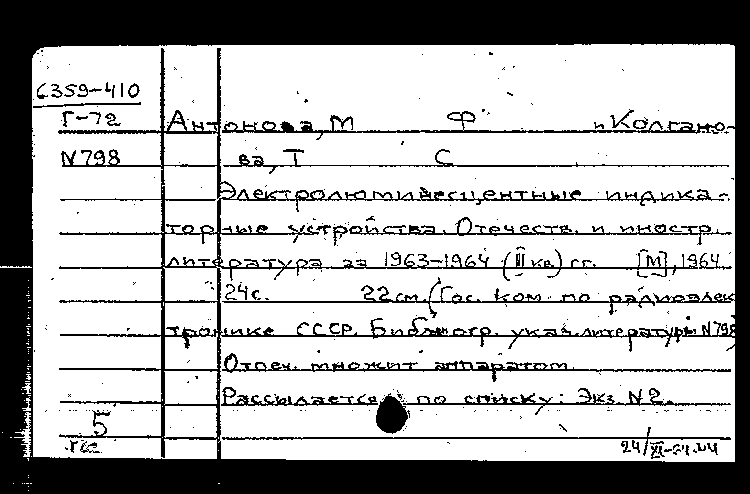 6359-410
Г-72 Антонова, М Ф и Колгано-
N798 ва, Т С
Электролюминесцентные индика-
торные устройства. Отечеств. и иностр.
литература за 1963-1964 (III кв) гг. [М], 1964
24с. 22 см. (Гос. Ком. по радиоэлек
тронике СССР. Библиогр. указ. литературы N798)
Отпеч. множит аппаратом
Рассылается по списку: Экз. N2.
5
24/XI-64